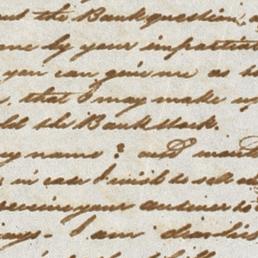 out the Bank question, a
me by your impartial
you can give me as to
, that I may make up
old the Bank Stock.
my name? and
in case I wish to sell
receive your answer to
I am